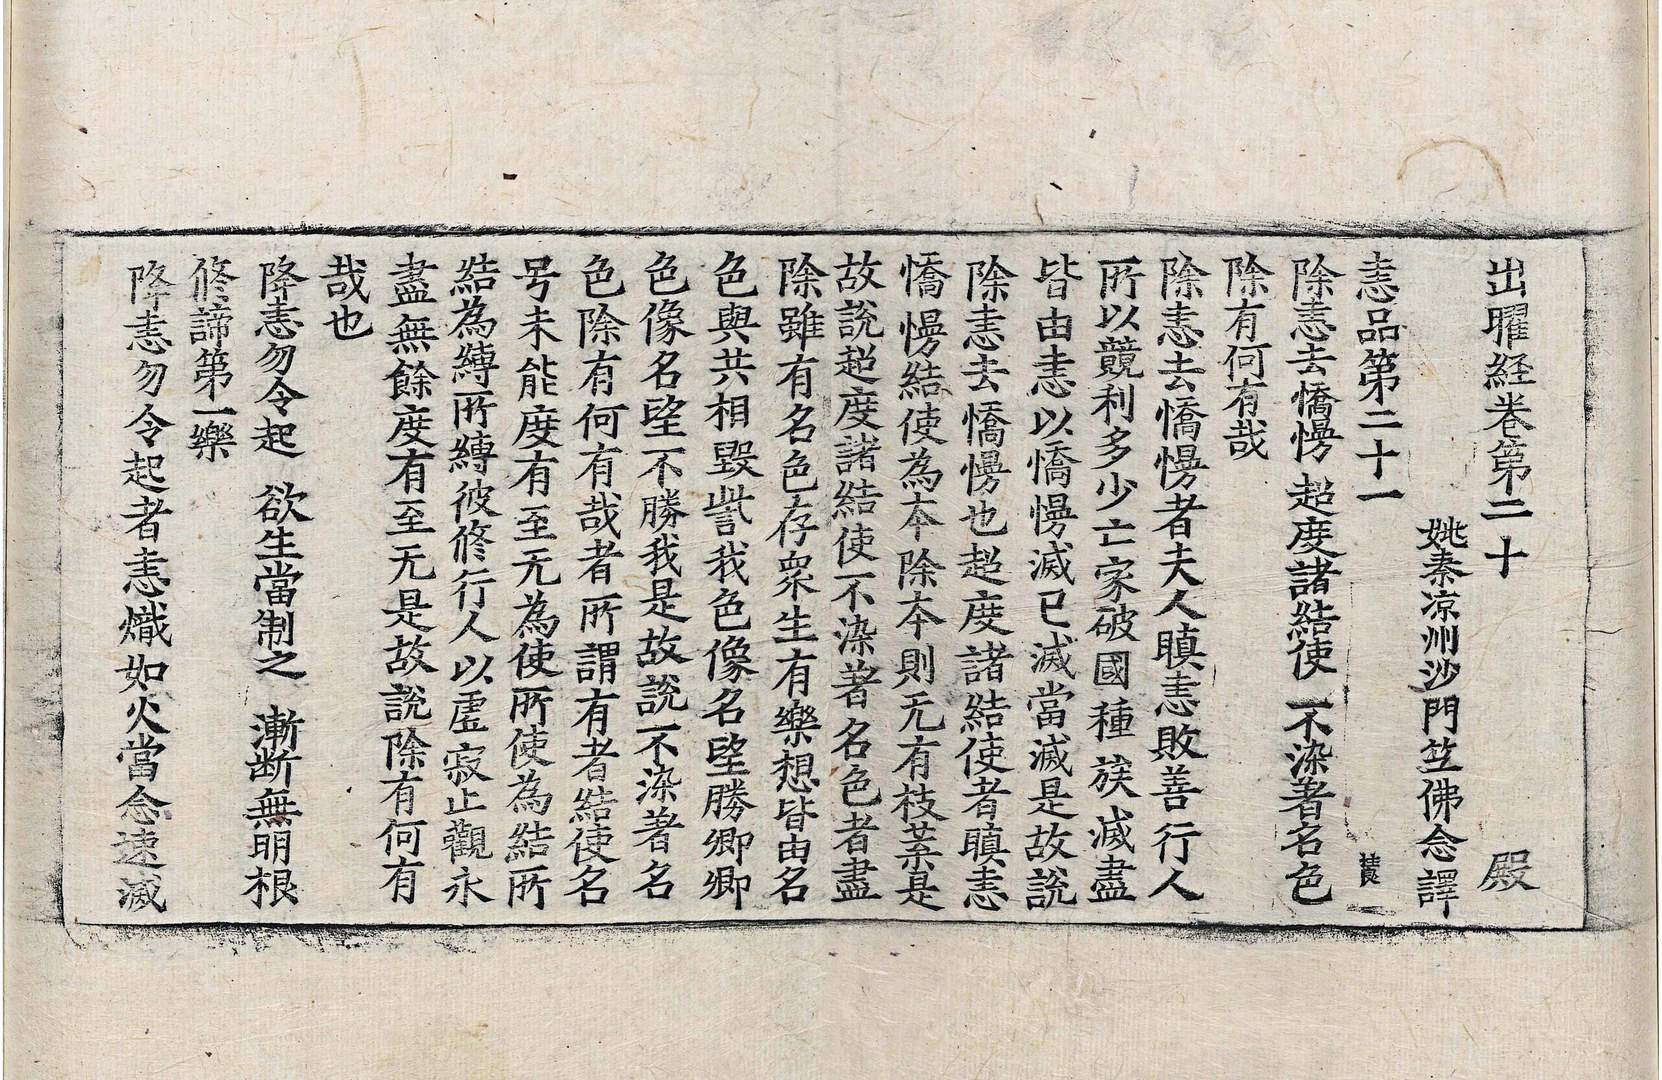 出曜経卷第二十 殿
姚秦凉州沙門竺佛念譯
恚品第二十一
除恚去憍慢 超度諸結使 不染著名色
除有何有哉
除恚去憍慢者夫人瞋恚敗善行人
所以競利多少亡家破國種族滅盡
皆由恚以憍慢滅已滅當滅是故說
除恚去憍慢也超度諸結使者瞋恚
憍慢結使為本除本則无有枝葉是
故說超度諸結使不染著名色者盡
除雖有名色存衆生有樂想皆由名
色與共相毀呰我色像名望勝卿卿
色像名望不勝我是故說不染著名
色除有何有哉者所謂有者結使名
号未能度有至无為使所使為結所
結為縛所縛彼修行人以虛寂止觀永
盡無餘度有至无是故說除有何有
哉也
降恚勿令起 欲生當制之 漸断無明根
修諦第一樂
降恚勿令起者恚熾如火當念速滅